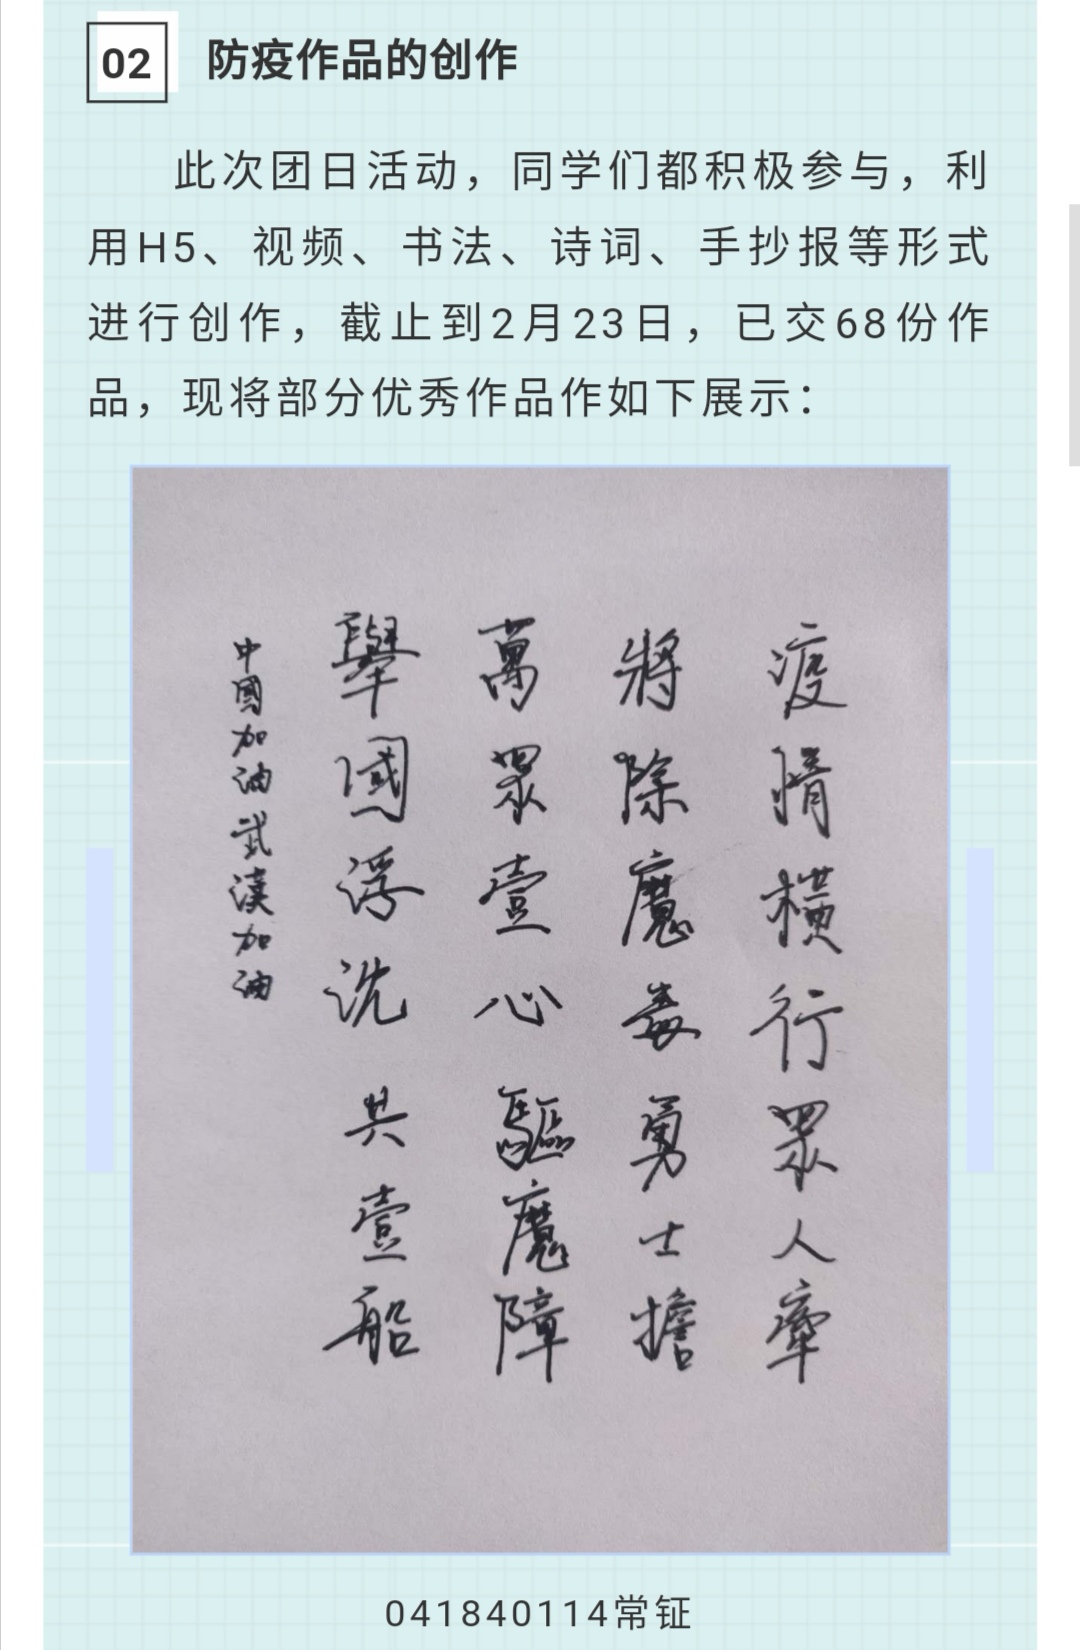 02 防疫作品的创作
此次团日活动，同学们都积极参与，利
用H5、视频、书法、诗词、手抄报等形式
进行创作，截止到2月23日，已交68份作
品，现将部分优秀作品作如下展示：
疫情橫行眾人牽
將除魔毒勇士擔
萬眾壹心驅魔障
舉國浮沈共壹船
中國加油武漢加油
041840114常钲